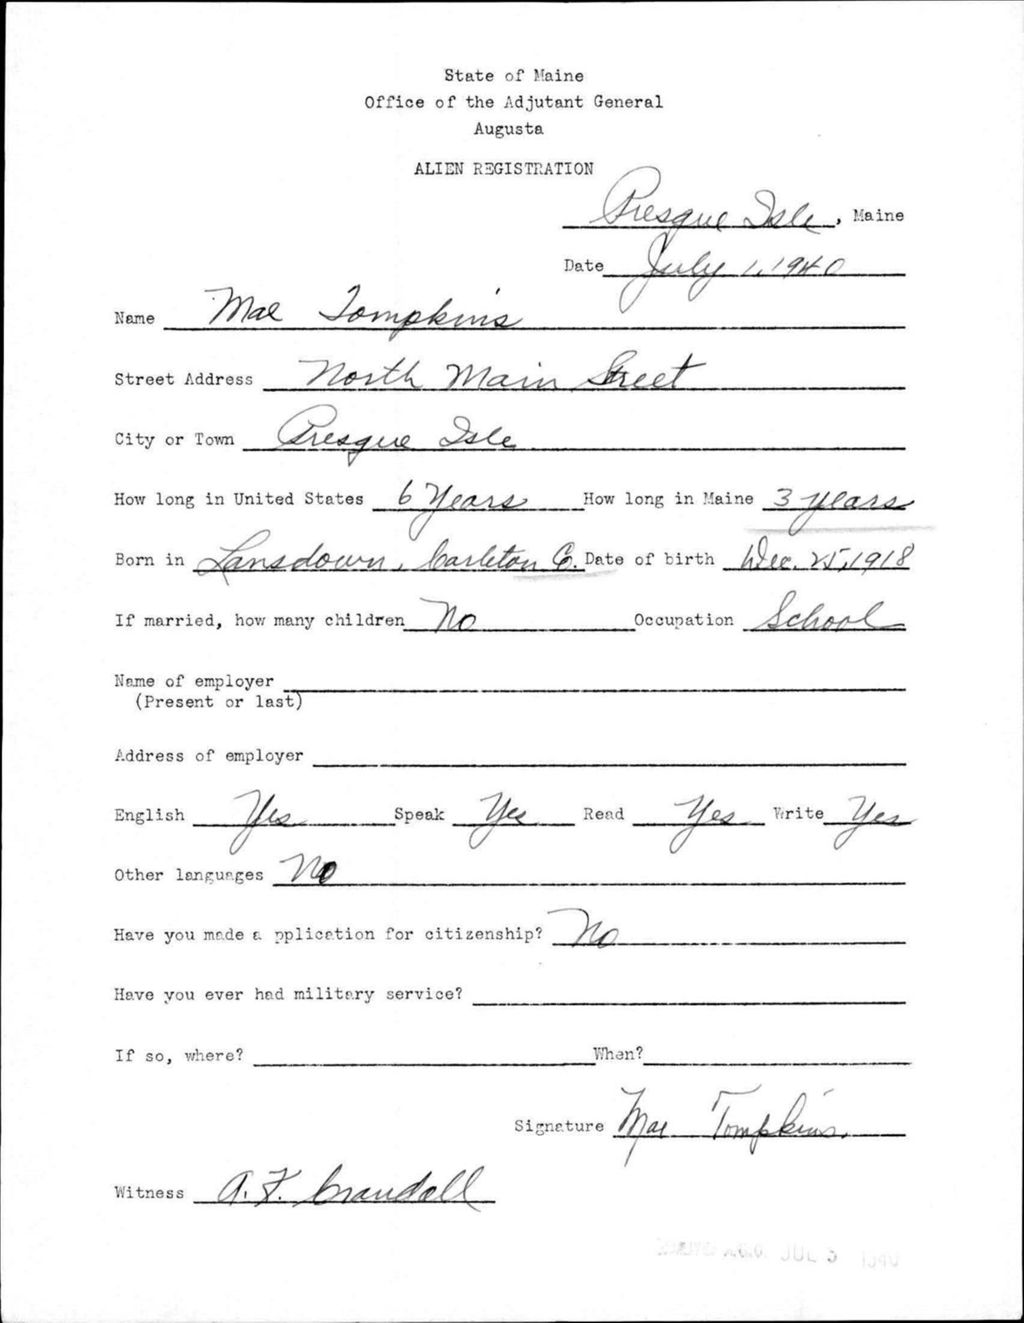 State of Maine
Office of the Adjutant General
Augusta
ALIEN REGISTRATION
Presque Isle, Maine
Date July 1, 1940
Name Mae Tompkins
Street Address North Main Street
City or Town Presque Isle
How long in United States 6 Years How long in Maine 3 years
Born in Lansdown, Carleton Co. Date of birth Dec. 25, 1918
If married, how many children No Occupation School
Name of employer
(Present or last)
Address of employer
English Yes Speak Yes Read Yes Write Yes
Other languages No
Have you made a pplication for citizenship? No
Have you ever had military service?
If so, where? When?
Signature Mae Tompkins.
Witness A. F. Crandall
A.G.O. JUL 6 1940